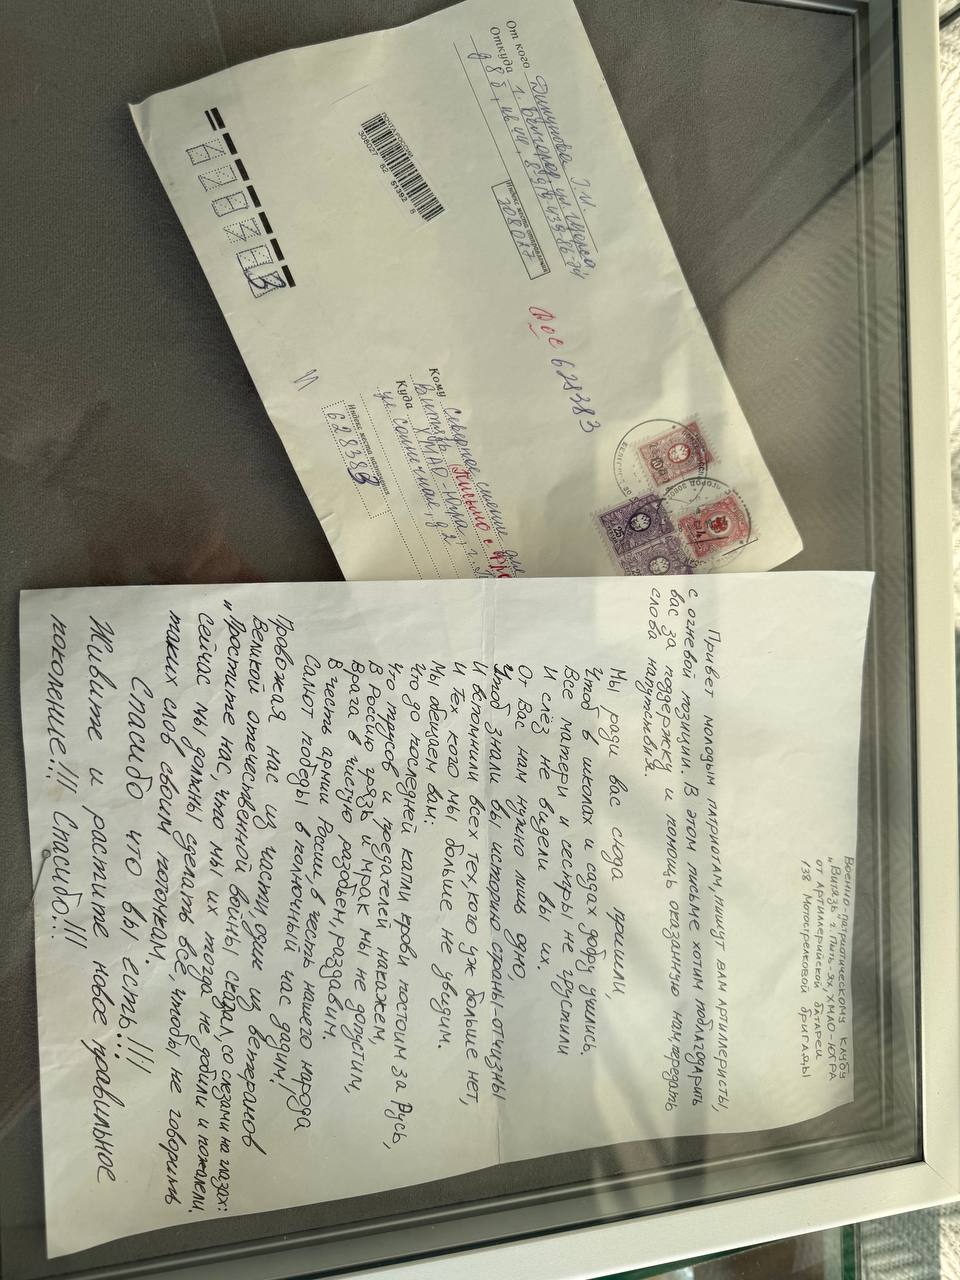 От кого Дикунова Г.И.
Откуда г. Белгород, ул. Щорса,
Индекс места отправления
308027
ПОЧТА РОССИИ
308027 82 51392 8
Вос 628383
Кому Северное сияние
Витязь Письмо с
Куда ХМАО-Югра, г.
ул Солнечная, д 2
Индекс места назначения
628383
25
25
Военно-патриотическому клубу
"Витязь" г. Пыть-Ях, ХМАО-Югра
от Артиллерийской батареи
138 Мотострелковой бригады
Привет молодым патриотам, пишут вам артиллеристы,
с огневой позиции. В этом письме хотим поблагодарить
вас за поддержку и помощь оказанную нам, передать
слова напутствия.
Мы ради вас сюда пришли,
Чтоб в школах и садах добру учились.
Все матери и сестры не грустили
И слёз не видели вы их.
От Вас нам нужно лишь одно,
Чтоб знали вы историю страны-отчизны
И вспомнили всех тех, кого уж больше нет,
И тех кого мы больше не увидим.
Мы обещаем вам:
Что до последней капли крови постоим за Русь,
Что трусов и предателей накажем,
В Россию грязь и мрак мы не допустим,
Врага в чистую разобьем, раздавим.
В честь армии России, в честь нашего народа
Салют победы в полночный час дадим!
Провожая нас из части, один из ветеранов
Великой отечественной войны сказал, со слезами на глазах:
"Простите нас, что мы их тогда не добили и пожалели.
Сейчас мы должны сделать всё, чтобы не говорить
таких слов своим потомкам.
Спасибо что вы есть!!!
Живите и растите новое правильное
поколение!!! Спасибо!!!